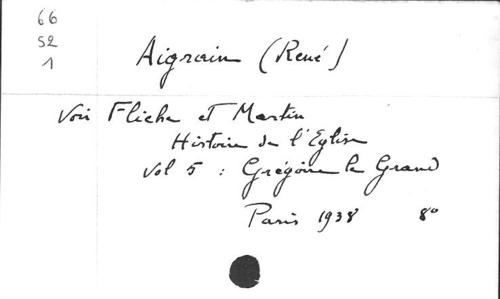 66
S2
1
Aigrain (René)
Voir Fliche et Martin
Histoire de l'Eglise
Vol 5 : Grégoire le Grand
Paris 1938 8°